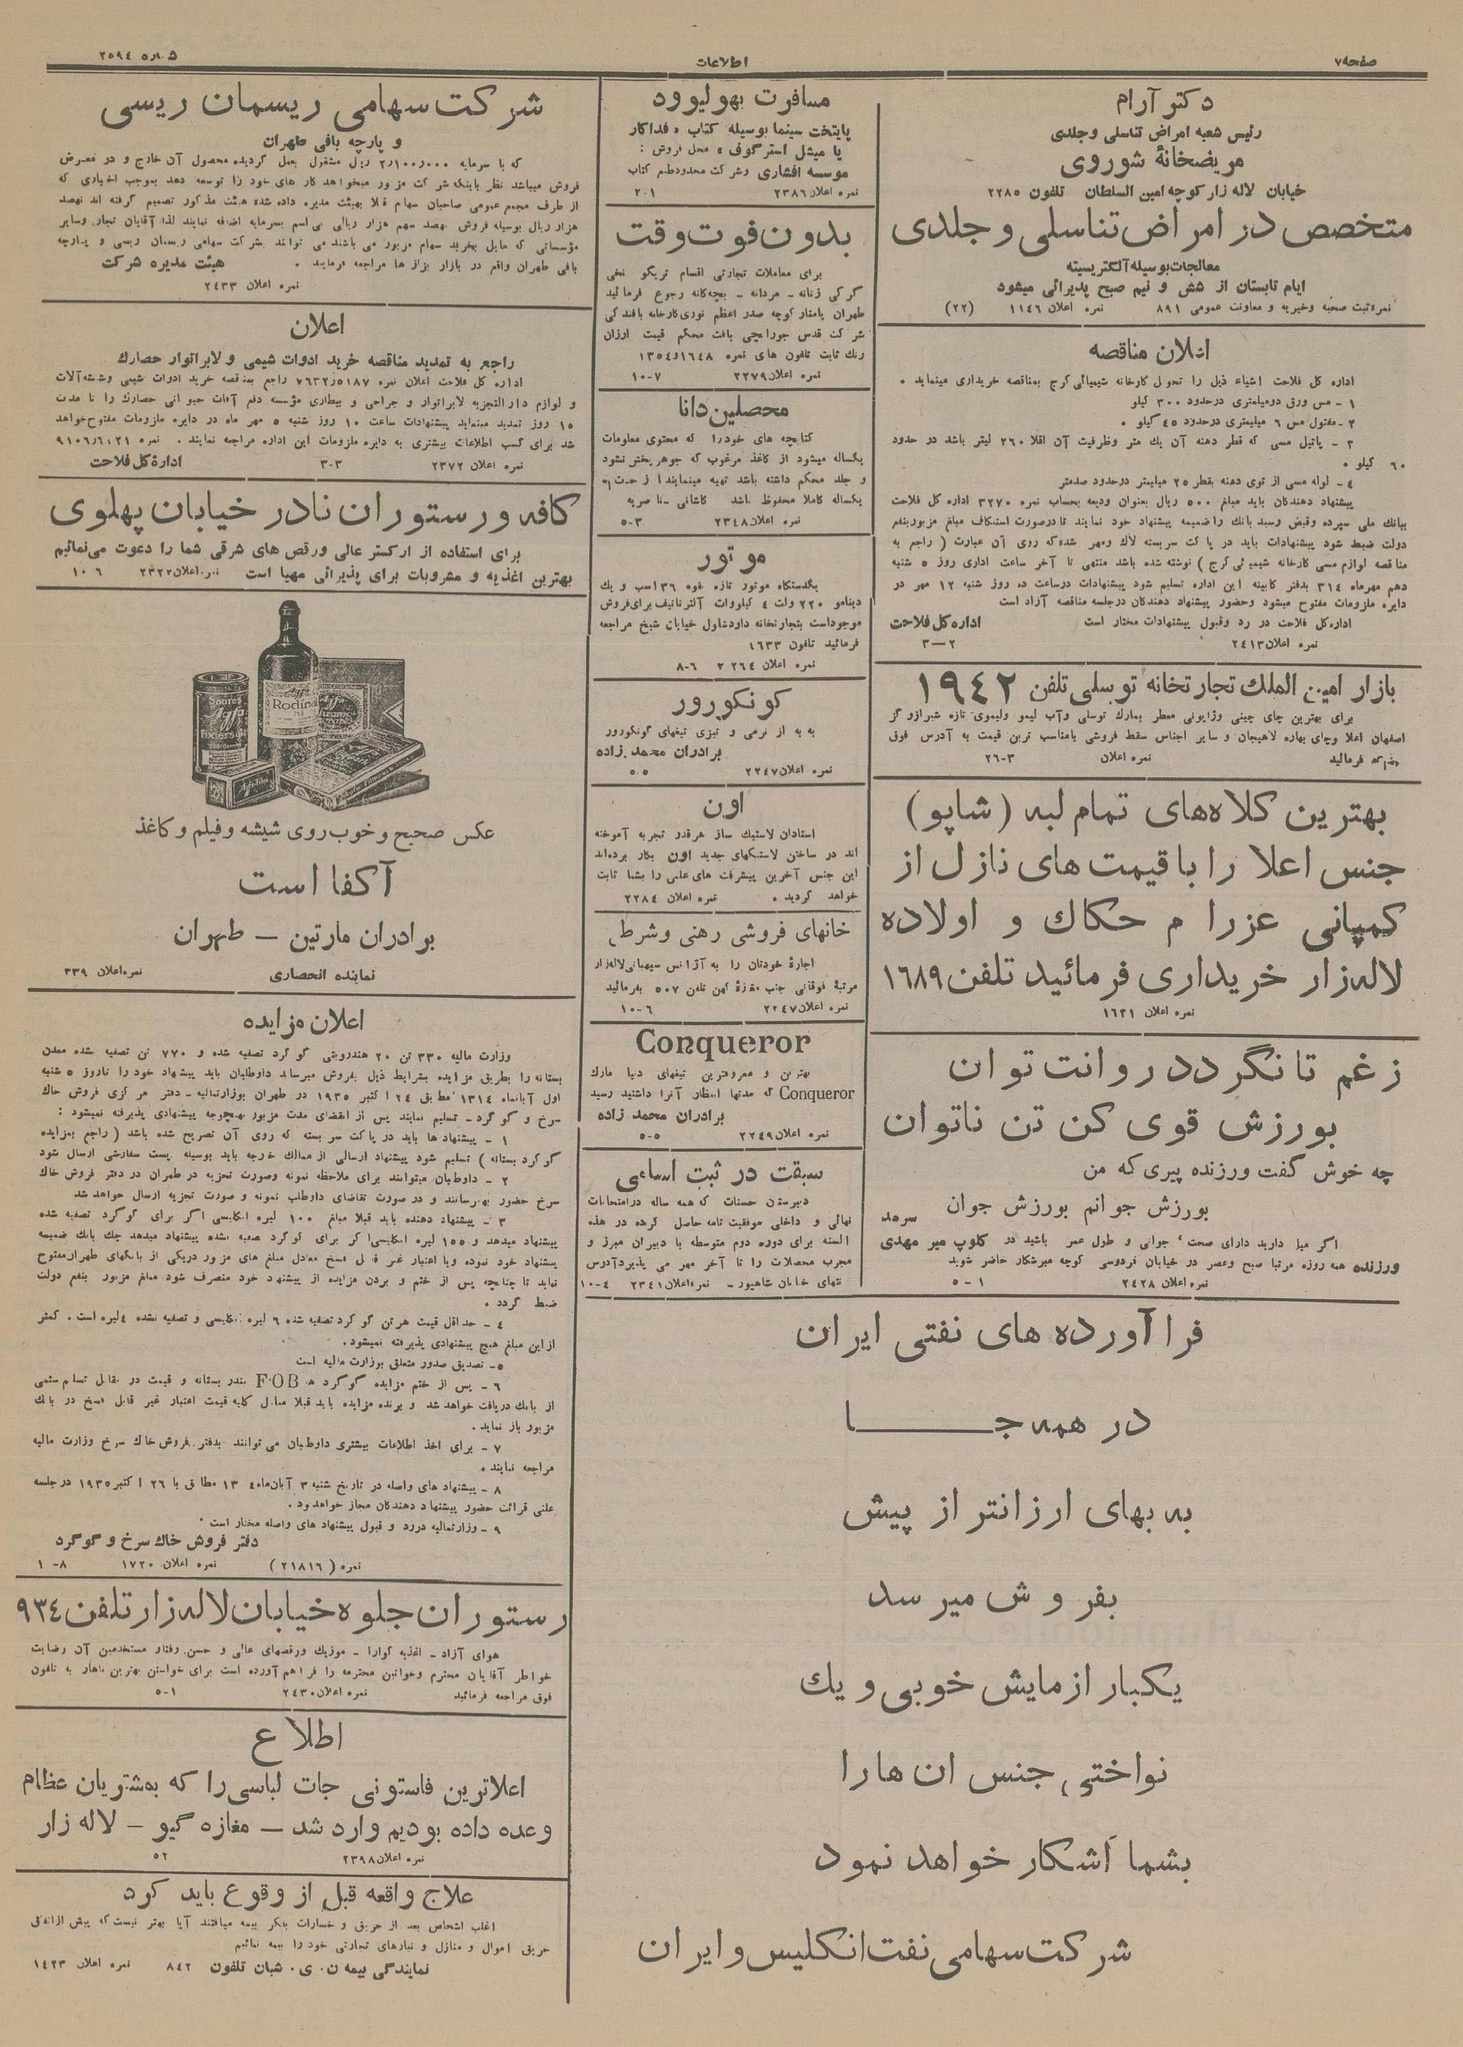 صفحه ۷
اطلاعات
شماره ۲۵۹۴
دکتر آرام
رئیس شعبه امراض تناسلی وجلدی
مریضخانهٔ شوروی
خیابان لاله زار کوچه امین السلطان تلفون ۲۲۸۵
متخصص در امراض تناسلی و جلدی
معالجات بوسیله آلکتریسیته
ایام تابستان از شش و نیم صبح پذیرائی میشود
نمره ثبت صحیه وخیریه و معاونت عمومی ۸۹۱ نمره اعلان ۱۱۴۶ (۲۲)
اعلان مناقصه
اداره کل فلاحت اشیاء ذیل را تحول کارخانه شیمیائی کرج بمناقصه خریداری مینماید .
۱ - مس ورق دومیلمتری درحدود ۳۰۰ کیلو
۲- مفتول مس ۶ میلیمتری درحدود ۴۵ کیلو .
۳ - پاتیل مسی که قطر دهنه آن یك متر وظرفیت آن اقلا ۲۶۰ لیتر باشد در حدود
۶۰ کیلو .
۴ - لوله مسی از توی دهنه بقطر ۲۵ میلیمتر درحدود صدمتر
پیشنهاد دهندگان باید مبلغ ۵۰۰ ریال بعنوان ودیعه بحساب نمره ۳۲۷۰ اداره کل فلاحت
ببانك ملی سپرده وقبض رسید بانك را ضمیمه پیشنهاد خود نمایند تا درصورت استنکاف مبلغ مزبور بنفع
دولت ضبط شود پیشنهادات باید در پاکت سربسته لاك ومهر شده که روی آن عبارت ( راجع به
مناقصه لوازم مسی کارخانه شیمیائی کرج ) نوشته شده باشد منتهی تا آخر ساعت اداری روز ۵ شنبه
دهم مهرماه ۳۱۴ بدفتر کابینه این اداره تسلیم شود پیشنهادات درساعت ده روز شنبه ۱۲ مهر در
دایره ملزومات مفتوح میشود وحضور پیشنهاد دهندکان درجلسه مناقصه آزاد است
اداره کل فلاحت در رد وقبول پیشنهادات مختار است اداره کل فلاحت
نمره اعلان ۲۴۱۳ ۲—۳
بازار امین الملك تجارتخانه توسلی تلفن ۱۹۴۲
برای بهترین چای چینی وژاپونی معطر بمارك توسلی وآب لیمو ولیموی تازه شیرازو گز
اصفهان اعلا وچای بهاره لاهیجان و سایر اجناس سقط فروشی بامناسب ترین قیمت به آدرس فوق
فرمائید نمره اعلان ۲۶-۳
بهترین کلاه‌های تمام لبه (شاپو)
جنس اعلا را با قیمت های نازل از
کمپانی عزرا م حکاك و اولاده
لاله‌زار خریداری فرمائید تلفن ۱۶۸۹
نمره اعلان ۱۶۲۱
زغم تا نگردد روانت توان
بورزش قوی کن تن ناتوان
چه خوش گفت ورزنده پیری که من
بورزش جوانم بورزش جوان سرمد
اگر میل دارید دارای صحت، جوانی و طول عمر باشید در کلوپ میر مهدی
ورزنده همه روزه مرتبا صبح وعصر در خیابان فردوسی کوچه میرشکار حاضر شوید
نمره اعلان ۲۴۲۸ ۱ - ۵
مسافرت بهولیوود
پایتخت سینما بوسیله کتاب « فداکار
یا میشل استرگوف » محل فروش :
موسسه افشاری وشرکت محدودطبع کتاب
نمره اعلان ۲۳۸۶ ۲-۱
بدون فوت وقت
برای معاملات تجارتی اقسام تریکو نخی
گرکی زنانه - مردانه - بچه‌گانه رجوع فرمائید
طهران پامنار کوچه صدر اعظم نوری کارخانه بافندگی
شرکت قدس جورابچی بافت محکم قیمت ارزان
رنك ثابت تلفون های نمره ۱۶۴۸و۱۳۵۴
نمره اعلان ۲۲۷۹ ۷-۱۰
محصلین دانا
کتابچه های خودرا که محتوی معلومات
یکساله میشود از کاغذ مرغوب که جوهر پخش نشود
و جلد محکم داشته باشد تهیه مینمایند از
یکساله کاملا محفوظ باشد کاشانی - ناصریه
نمره اعلان ۲۳۴۸ ۳-۵
موتور
یکدستگاه موتور تازه قوه ۳۶ اسب و یك
دینامو ۲۲۰ وات ۴ کیلووات آلترناتیف برای فروش
موجوداست بتجارتخانه داودشاول خیابان شیخ مراجعه
فرمائید تلفون ۱۶۳۳
نمره اعلان ۲۲۶۴ ۶-۸
کونکورور
به به از نرمی و تیزی تیغهای کونکورور
برادران محمدزاده
نمره اعلان ۲۲۴۷ ۵-۵
اون
استادان لاستیك ساز هرقدر تجربه آموخته
اند در ساختن لاستیکهای جدید اون بکار برده‌اند
این جنس آخرین پیشرفت های علمی را بشما ثابت
خواهد گردید . نمره اعلان ۲۲۸۴
خانهای فروشی رهنی وشرطی
اجارهٔ خودتان را به آژانس سپهبانی لاله‌زار
مرتبهٔ فوقانی جنب مغازهٔ کهن تلفن ۵۰۷ بفرمائید
نمره اعلان ۲۲۴۷ ۶-۱۰
Conqueror
بهترین و معروفترین تیغهای دنیا مارك
Conqueror که مدتها انتظار آنرا داشتید رسید
برادران محمد زاده
نمره اعلان ۲۲۴۹ ۵-۵
سبقت در ثبت اسامی
دبیرستان حسنات که همه ساله درامتحانات
نهائی و داخلی موفقیت تامه حاصل کرده در هذه
السنه برای دوره دوم متوسطه با دبیران مبرز و
مجرب محصلات را تا آخر مهر می پذیرد آدرس
انتهای خیابان شاهپور - نمره اعلان ۲۳۴۱ ۴-۱۰
فرآورده های نفتی ایران
در همه جا
به بهای ارزانتر از پیش
بفروش میرسد
یکبار ازمایش خوبی و یك
نواختی جنس ان هارا
بشما آشکار خواهد نمود
شرکت سهامی نفت انکلیس و ایران
شرکت سهامی ریسمان ریسی
و پارچه بافی طهران
که با سرمایه ۲٫۱۰۰٫۰۰۰ ریال مشغول بعمل گردیده محصول آن خارج و در معرض
فروش میباشد نظر باینکه شرکت مزبور میخواهد کار های خود را توسعه دهد بموجب اختیاری که
از طرف مجمع عمومی صاحبان سهام قبلا بهیئت مدیره داده شده هیئت مذکور تصمیم گرفته اند نهصد
هزار ریال بوسیله فروش نهصد سهم هزار ریالی بی‌اسم بسرمایه اضافه نمایند لذا آقایان تجار وسایر
مؤسساتی که مایل بخرید سهام مزبور می باشند می توانند بشرکت سهامی ریسمان ریسی و پارچه
بافی طهران واقع در بازار بزاز ها مراجعه فرمایند . هیئت مدیره شرکت
نمره اعلان ۲۴۳۳
اعلان
راجع به تمدید مناقصه خرید ادوات شیمی و لابراتوار حصارك
اداره کل فلاحت اعلان نمره ۷۶۳۲٫۵۱۸۷ راجع بمناقصه خرید ادوات شیمی وشیشه‌آلات
و لوازم دارالتجزیه لابراتوار و جراحی و بیطاری مؤسسه دفع آفات حیوانی حصارك را تا مدت
۱۵ روز تمدید مینماید پیشنهادات ساعت ۱۰ روز شنبه ۵ مهر ماه در دایره ملزومات مفتوح خواهد
شد برای کسب اطلاعات بیشتری به دایره ملزومات این اداره مراجعه نمایند . نمره ۹۱۰۶٫۶۱۲۱
نمره اعلان ۲۳۷۲ ۳-۳ اداره کل فلاحت
کافه و رستوران نادر خیابان پهلوی
برای استفاده از ارکستر عالی ورقص های شرقی شما را دعوت می‌نمائیم
بهترین اغذیه و مشروبات برای پذیرائی مهیا است نمره اعلان ۲۳۲۲ ۶-۱۰
Agfa
Fixiersalz
Agfa
Rodinal
عکس صحیح و خوب روی شیشه و فیلم و کاغذ
آکفا است
برادران مارتین — طهران
نماینده انحصاری نمره اعلان ۳۳۹
اعلان مزایده
وزارت مالیه ۳۳۰ تن ۲۰ هندرویتی گوگرد تصفیه شده و ۷۷۰ تن تصفیه نشده معدن
بستانه را بطریق مزایده بشرایط ذیل بفروش میرساند داوطلبان باید پیشنهاد خود را تا روز ۵ شنبه
اول آبانماه ۱۳۱۴ مطابق ۲۴ اکتبر ۱۹۳۵ در طهران بوزارتمالیه - دفتر مرکزی فروش خاك
سرخ و گوگرد - تسلیم نمایند پس از انقضای مدت مزبور بهیچوجه پیشنهادی پذیرفته نمیشود :
۱ - پیشنهاد ها باید در پاکت سر بسته که روی آن تصریح شده باشد ( راجع بمزایده
گوگرد بستانه ) تسلیم شود پیشنهاد ارسالی از ممالك خارجه باید بوسیله پست سفارشی ارسال شود
۲ - داوطلبان میتوانند برای ملاحظه نمونه وصورت تجزیه در طهران در دفتر فروش خاك
سرخ حضور بهم‌رسانند و در صورت تقاضای داوطلب نمونه و صورت تجزیه ارسال خواهد شد
۳ - پیشنهاد دهنده باید قبلا مبلغ ۱۰۰ لیره انگلیسی اگر برای گوگرد تصفیه شده
پیشنهاد میدهد و ۱۵۵ لیره انگلیسی اگر برای گوگرد تصفیه نشده پیشنهاد میدهد چك بانك ضمیمه
پیشنهاد خود نموده ویا اعتبار غیر قابل فسخ معادل مبلغ های مزبور دریکی از بانکهای طهران مفتوح
نماید تا چنانچه پس از ختم و بردن مزایده از پیشنهاد خود منصرف شود مبلغ مزبور بنفع دولت
ضبط گردد .
۴ - حداقل قیمت هر تن گوگرد تصفیه شده ۶ لیره انگلیسی و تصفیه نشده ۴ لیره است . کمتر
از این مبلغ هیچ پیشنهادی پذیرفته نمیشود .
۵ - تصدیق صدور متعلق بوزارت مالیه است
۶ - پس از ختم مزایده گوگرد F.O.B بندر بستانه و قیمت در مقابل تسلیم
از بانك دریافت خواهد شد و برنده مزایده باید قبلا معادل کلیه قیمت اعتبار غیر قابل فسخ در بانك
مزبور باز نماید .
۷ - برای اخذ اطلاعات بیشتری داوطلبان می توانند بدفتر فروش خاك سرخ وزارت مالیه
مراجعه نمایند .
۸ - پیشنهاد های واصله در تاریخ شنبه ۳ آبان‌ماه ۱۳۱۴ مطابق با ۲۶ اکتبر ۱۹۳۵ در جلسه
علنی قرائت حضور پیشنهاد دهندکان مجاز خواهد بود .
۹ - وزارتمالیه دررد و قبول پیشنهاد های واصله مختار است .
دفتر فروش خاك سرخ و گوگرد
نمره (۲۱۸۱۶) نمره اعلان ۱۷۲۰ ۸-۱
رستوران جلوه خیابان لاله زار تلفن ۹۳۴
هوای آزاد - اغذیه گوارا - موزیك ورقصهای عالی و حسن رفتار مستخدمین آن رضایت
خواطر آقایان محترم وخوانین محترمه را فراهم آورده است برای خواستن بهترین ناهار به تلفون
فوق مراجعه فرمائید نمره اعلان ۲۴۳۰ ۱-۵
اطلاع
اعلاترین فاستونی جات لباسی را که بمشتریان عظام
وعده داده بودیم وارد شد — مغازه گیو - لاله زار
نمره اعلان ۲۳۹۸ ۵۲
علاج واقعه قبل از وقوع باید کرد
اغلب اشخاص بعد از حریق و خسارات بفکر بیمه میافتند آیا بهتر نیست که پیش از اتفاق
حریق اموال و منازل و انبارهای تجارتی خود را بیمه نمائیم
نمایندگی بیمه ن. ی. شبان تلفون ۸۴۲ نمره اعلان ۱۴۲۳